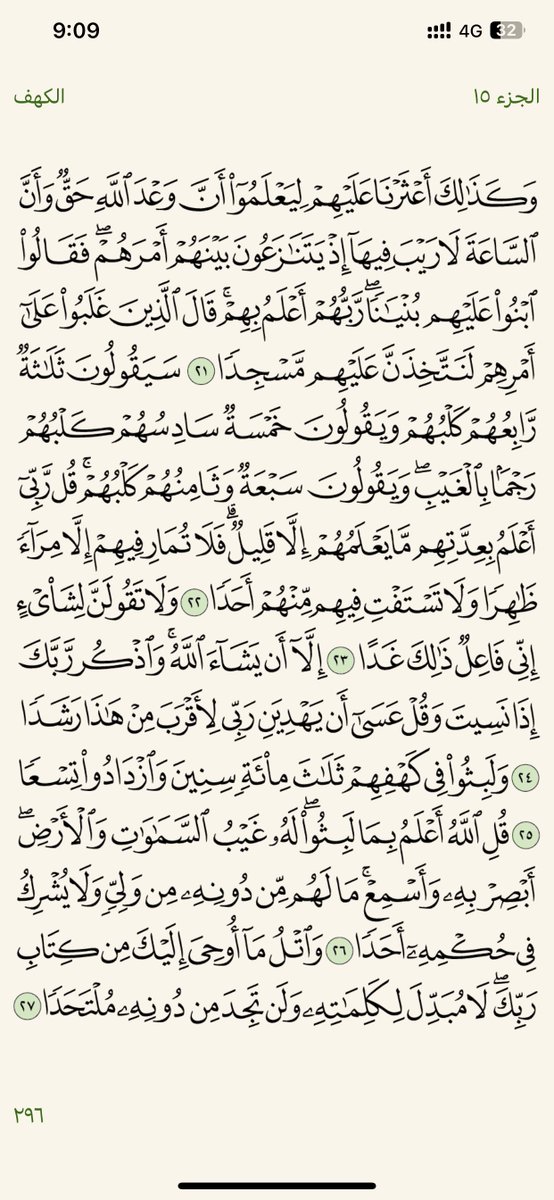 9:09 4G 32
الجزء ١٥ الكهف
وَكَذَٰلِكَ أَعْثَرْنَا عَلَيْهِمْ لِيَعْلَمُوٓا۟ أَنَّ وَعْدَ ٱللَّهِ حَقٌّ وَأَنَّ
ٱلسَّاعَةَ لَا رَيْبَ فِيهَآ إِذْ يَتَنَٰزَعُونَ بَيْنَهُمْ أَمْرَهُمْ ۖ فَقَالُوا۟
ٱبْنُوا۟ عَلَيْهِم بُنْيَٰنًا ۖ رَّبُّهُمْ أَعْلَمُ بِهِمْ ۚ قَالَ ٱلَّذِينَ غَلَبُوا۟ عَلَىٰٓ
أَمْرِهِمْ لَنَتَّخِذَنَّ عَلَيْهِم مَّسْجِدًا ٢١ سَيَقُولُونَ ثَلَٰثَةٌ
رَّابِعُهُمْ كَلْبُهُمْ وَيَقُولُونَ خَمْسَةٌ سَادِسُهُمْ كَلْبُهُمْ
رَجْمًۢا بِٱلْغَيْبِ ۖ وَيَقُولُونَ سَبْعَةٌ وَثَامِنُهُمْ كَلْبُهُمْ ۚ قُل رَّبِّىٓ
أَعْلَمُ بِعِدَّتِهِم مَّا يَعْلَمُهُمْ إِلَّا قَلِيلٌ ۗ فَلَا تُمَارِ فِيهِمْ إِلَّا مِرَآءً
ظَٰهِرًا وَلَا تَسْتَفْتِ فِيهِم مِّنْهُمْ أَحَدًا ٢٢ وَلَا تَقُولَنَّ لِشَا۟ىْءٍ
إِنِّى فَاعِلٌ ذَٰلِكَ غَدًا ٢٣ إِلَّآ أَن يَشَآءَ ٱللَّهُ ۚ وَٱذْكُر رَّبَّكَ
إِذَا نَسِيتَ وَقُلْ عَسَىٰٓ أَن يَهْدِيَنِ رَبِّى لِأَقْرَبَ مِنْ هَٰذَا رَشَدًا
٢٤ وَلَبِثُوا۟ فِى كَهْفِهِمْ ثَلَٰثَ مِا۟ئَةٍ سِنِينَ وَٱزْدَادُوا۟ تِسْعًا
٢٥ قُلِ ٱللَّهُ أَعْلَمُ بِمَا لَبِثُوا۟ ۖ لَهُۥ غَيْبُ ٱلسَّمَٰوَٰتِ وَٱلْأَرْضِ ۖ
أَبْصِرْ بِهِۦ وَأَسْمِعْ ۚ مَا لَهُم مِّن دُونِهِۦ مِن وَلِىٍّ وَلَا يُشْرِكُ
فِى حُكْمِهِۦٓ أَحَدًا ٢٦ وَٱتْلُ مَآ أُوحِىَ إِلَيْكَ مِن كِتَابِ
رَبِّكَ ۖ لَا مُبَدِّلَ لِكَلِمَٰتِهِۦ وَلَن تَجِدَ مِن دُونِهِۦ مُلْتَحَدًا ٢٧
٢٩٦